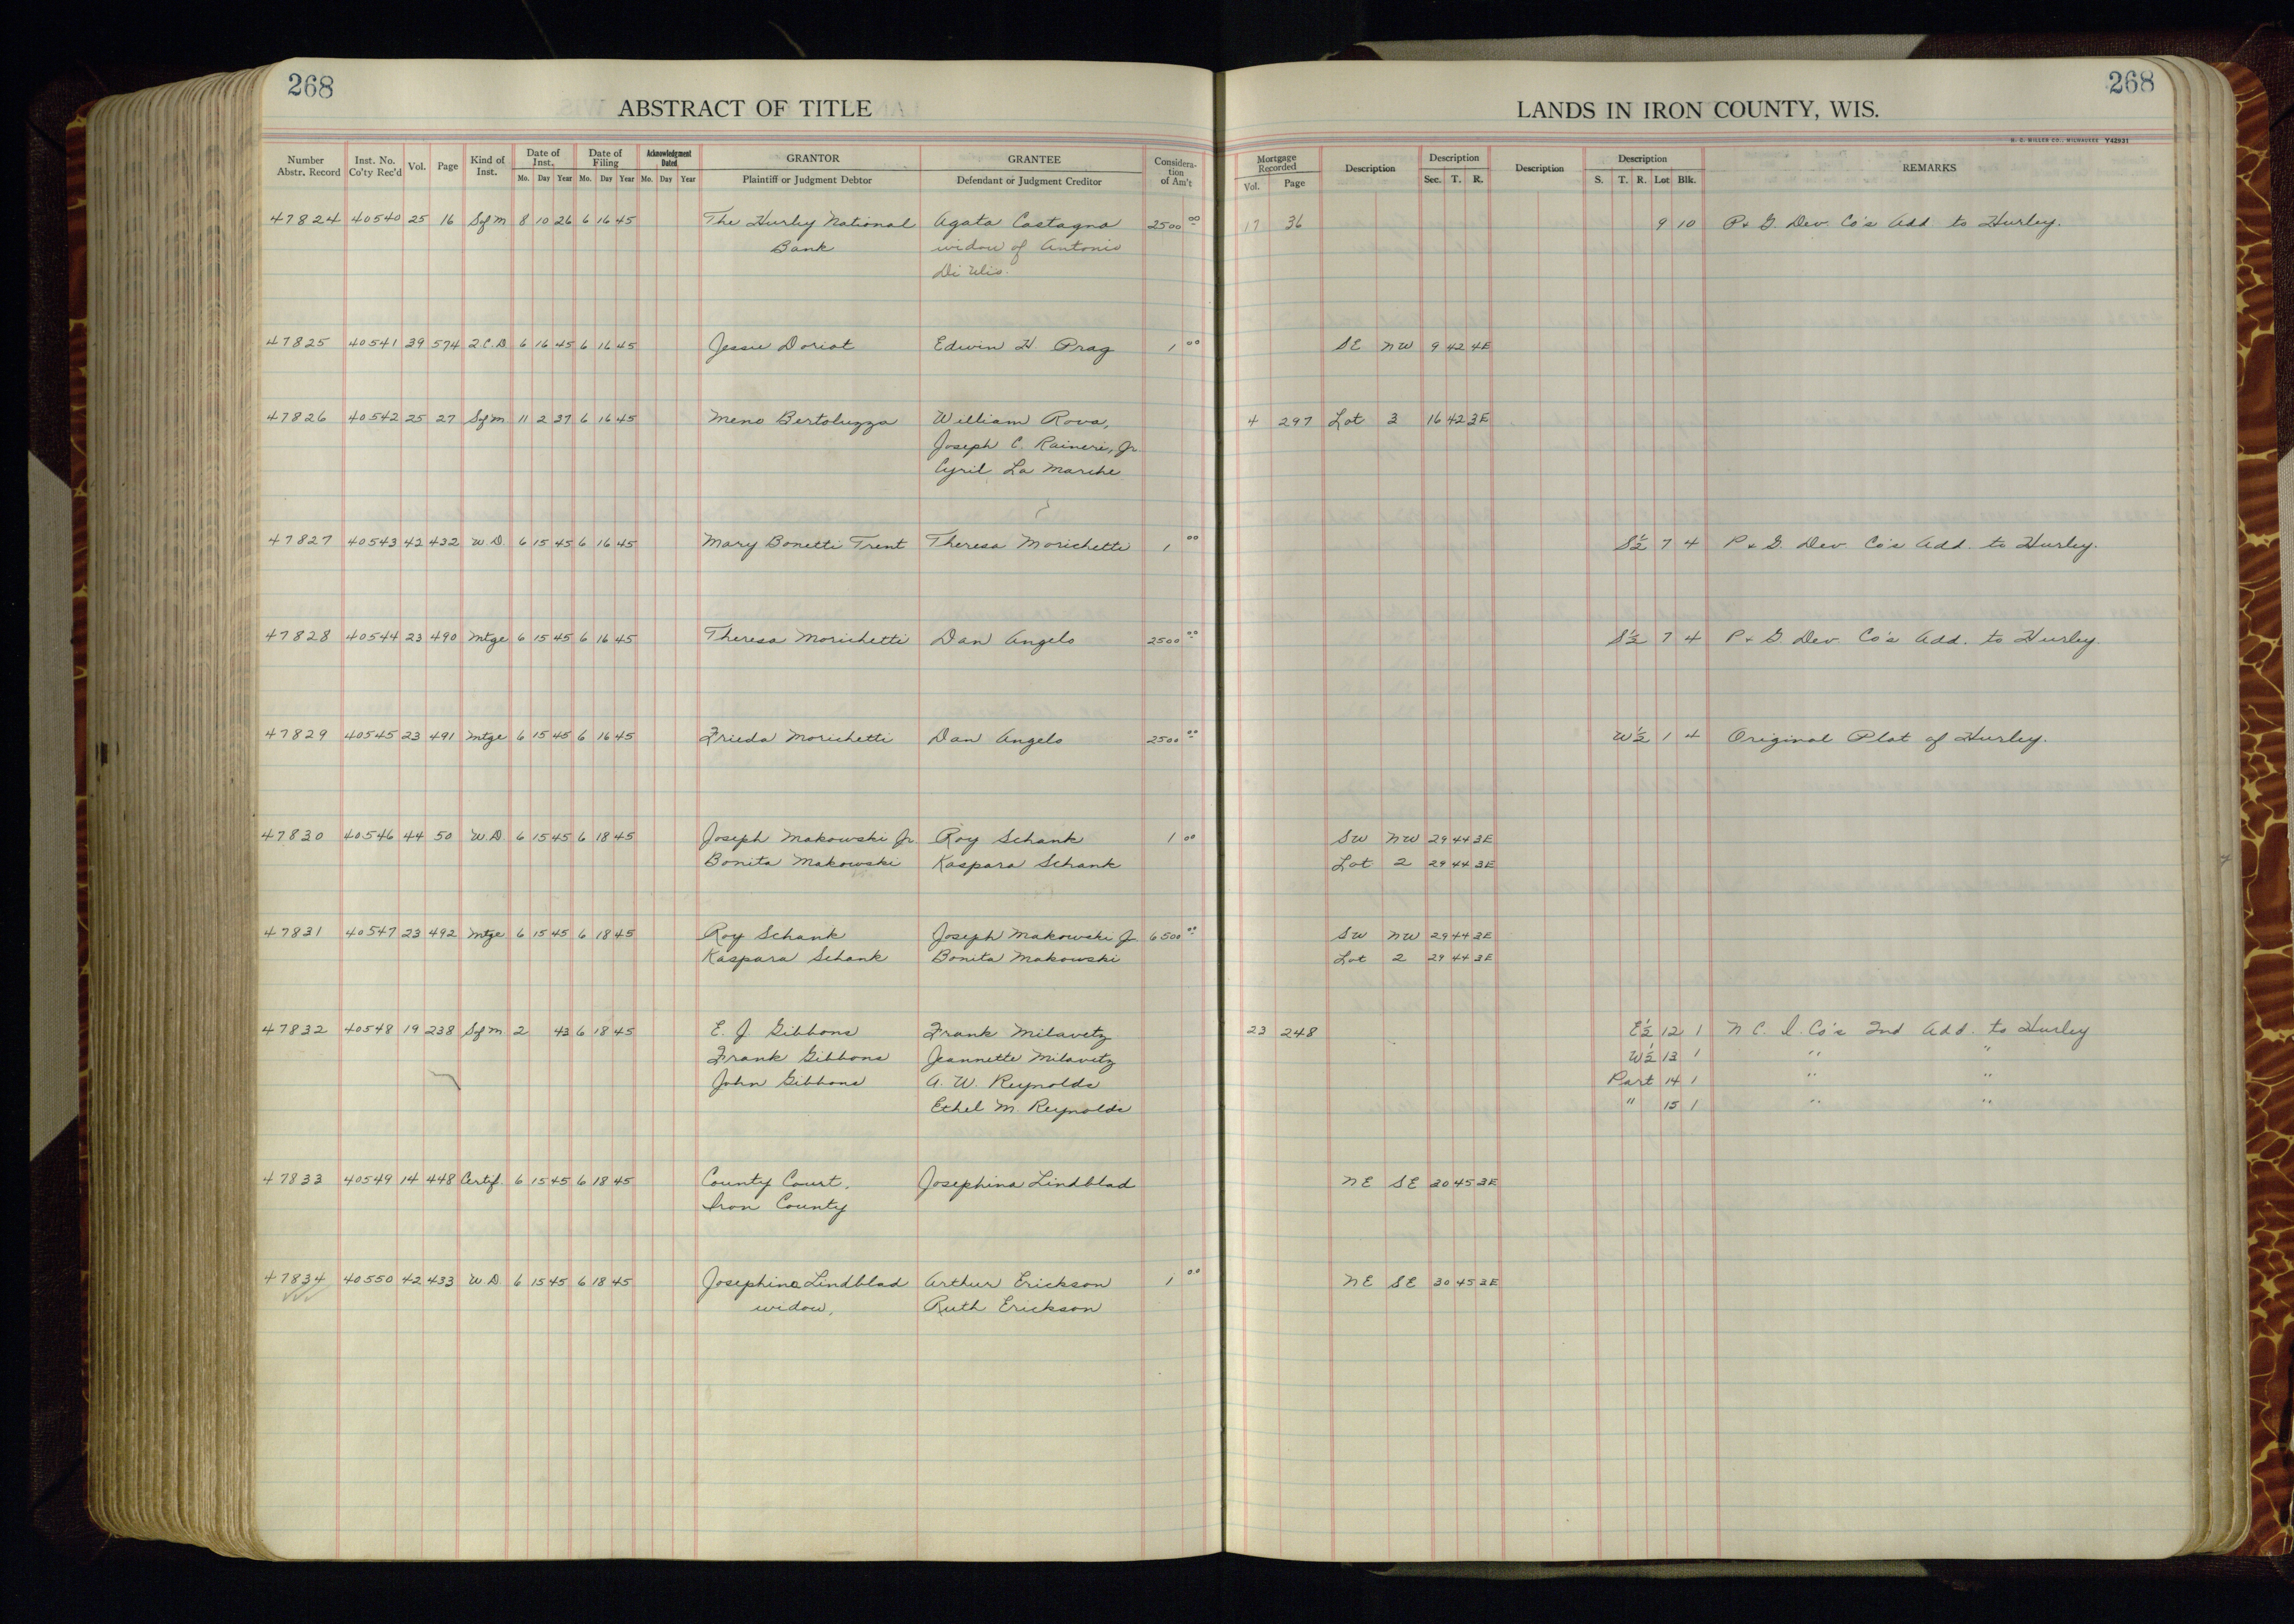 268
ABSTRACT OF TITLE
LANDS IN IRON COUNTY, WIS.
268
H. C. MILLER CO., MILWAUKEE Y42931
Number Abstr. Record | Inst. No. Co'ty Rec'd | Vol. | Page | Kind of Inst. | Date of Inst. Mo. Day Year | Date of Filing Mo. Day Year | Acknowledgment Dated Mo. Day Year | GRANTOR Plaintiff or Judgment Debtor | GRANTEE Defendant or Judgment Creditor | Consideration of Am't | Mortgage Recorded Vol. Page | Description | Description Sec. T. R. | Description | Description S. T. R. Lot Blk. | REMARKS
47824 40540 25 16 Sfm 8 10 26 6 16 45 The Hurley National Agata Castagna 2500 00 17 36 9 10 P & G. Dev. Co's Add. to Hurley.
Bank widow of Antonio
Di Ulio.
47825 40541 39 574 2.C.D 6 16 45 6 16 45 Jessie Doriot Edwin H. Prag 1 00 SE NW 9 42 4E
47826 40542 25 27 Sfm 11 2 37 6 16 45 Meno Bertoluzza William Rova, 4 297 Lot 3 16 42 3E
Joseph C. Raineri, Jr.
Cyril La Marche
47827 40543 42 432 W.D 6 15 45 6 16 45 Mary Bonetti Trent Theresa Morichetti 1 00 S½ 7 4 P & G. Dev. Co's Add. to Hurley.
47828 40544 23 490 Mtge 6 15 45 6 16 45 Theresa Morichetti Dan Angelo 2500 00 S½ 7 4 P & G. Dev. Co's Add. to Hurley.
47829 40545 23 491 Mtge 6 15 45 6 16 45 Frieda Morichetti Dan Angelo 2500 00 W½ 1 4 Original Plat of Hurley.
47830 40546 44 50 W.D. 6 15 45 6 18 45 Joseph Makowski Jr. Roy Schank 1 00 SW NW 29 44 3E
Bonita Makowski Kaspara Schank Lot 2 29 44 3E
47831 40547 23 492 Mtge 6 15 45 6 18 45 Roy Schank Joseph Makowski Jr. 6500 00 SW NW 29 44 3E
Kaspara Schank Bonita Makowski Lot 2 29 44 3E
47832 40548 19 238 Sfm 2 43 6 18 45 E. J. Gibbons Frank Milavetz 23 248 E½ 12 1 N. C. I. Co's 2nd Add. to Hurley
Frank Gibbons Jeannette Milavetz W½ 13 1 " "
John Gibbons A. W. Reynolds Part 14 1 " "
Ethel M. Reynolds " 15 1 " "
47833 40549 14 448 Certif. 6 15 45 6 18 45 County Court, Josephina Lindblad NE SE 30 45 3E
Iron County
47834 40550 42 433 W.D. 6 15 45 6 18 45 Josephina Lindblad Arthur Erickson 1 00 NE SE 30 45 3E
widow, Ruth Erickson